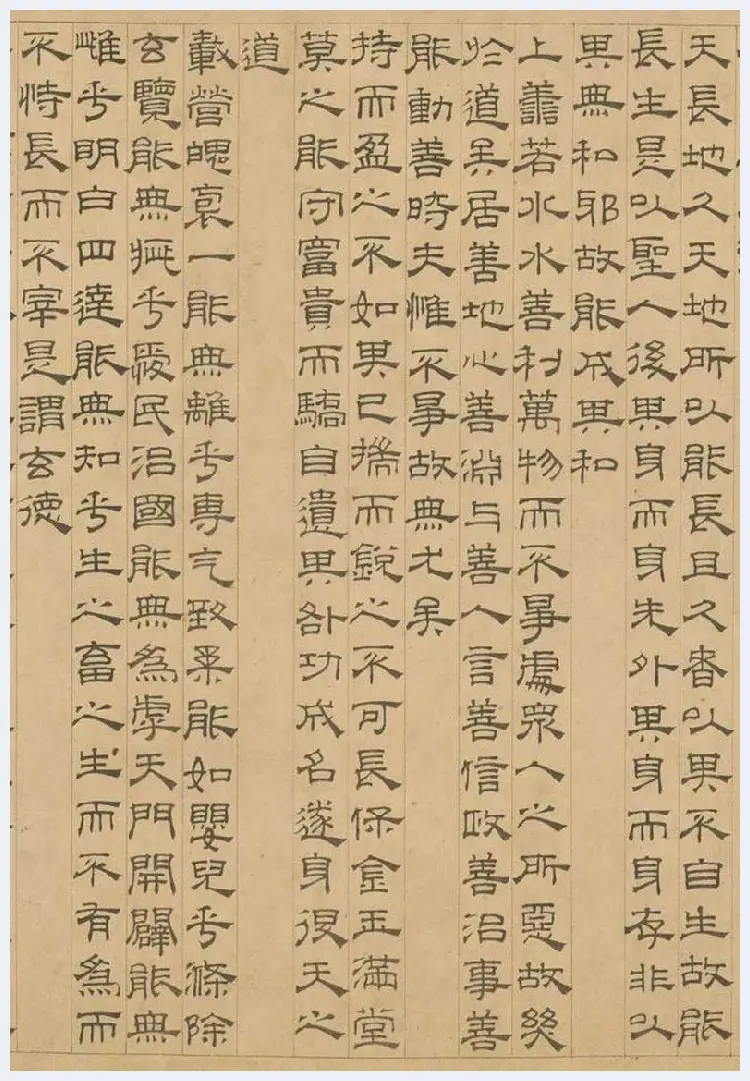 天長地久天地所以能長且久者以其不自生故能
長生是以聖人後其身而身先外其身而身存非以
其無私邪故能成其私
上善若水水善利萬物而不爭處衆人之所惡故幾
於道矣居善地心善淵与善人言善信政善治事善
能動善時夫惟不爭故無尤矣
持而盈之不如其已揣而銳之不可長保金玉滿堂
莫之能守富貴而驕自遺其咎功成名遂身退天之
道
載營魄袌一能無離乎專气致柔能如嬰兒乎滌除
玄覽能無疵乎愛民治國能無為虖天門開闢能無
雌乎明白四達能無知乎生之畜之生而不有為而
不恃長而不宰是謂玄德